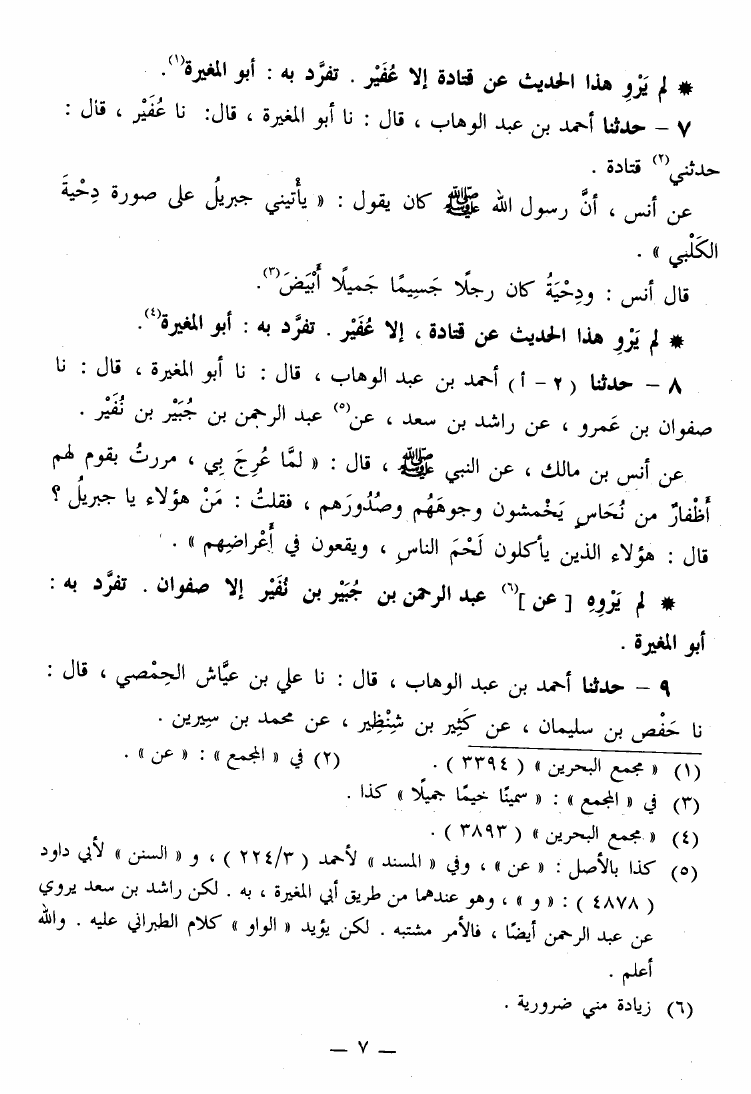 * لم يَرْوِ هذا الحديث عن قتادة إلا عُفَيْر . تفرَّد به : أبو المغيرة(١).
٧ – حدثنا أحمد بن عبد الوهاب ، قال : نا أبو المغيرة ، قال: نا عُفَيْر ، قال :
حدثني(٢) قتادة .
عن أنس ، أنَّ رسول الله ﷺ كان يقول : « يأْتيني جبريلُ على صورة دِحْيةَ
الكَلْبي » .
قال أنس : ودِحْيَةُ كان رجلًا جَسِيمًا جَميلًا أَبْيَضَ(٣).
* لم يَرْوِ هذا الحديث عن قتادة ، إلا عُفَيْر . تفرَّد به : أبو المغيرة(٤).
٨ – حدثنا ( ٢ – أ ) أحمد بن عبد الوهاب ، قال : نا أبو المغيرة ، قال : نا
صفوان بن عَمرو ، عن راشد بن سعد ، عن(٥) عبد الرحمن بن جُبَيْر بن نُفَيْر .
عن أنس بن مالك ، عن النبي ﷺ ، قال : « لمَّا عُرِجَ بي ، مررتُ بقوم لهم
أَظْفارٌ من نُحَاسٍ يَخْمشون وجوهَهُم وصُدُورَهم ، فقلتُ : مَنْ هؤلاء يا جبريلُ ؟
قال : هؤلاء الذين يأكلون لَحْمَ الناسِ ، ويقعون في أَعْراضِهم » .
* لم يَرْوِهِ [ عن ](٦) عبد الرحمن بن جُبَيْر بن نُفَيْر إلا صفوان . تفرَّد به :
أبو المغيرة .
٩ – حدثنا أحمد بن عبد الوهاب ، قال : نا علي بن عيَّاش الحِمْصي ، قال :
نا حَفْص بن سليمان ، عن كَثِير بن شِنْظِير ، عن محمد بن سِيرين .
(١) « مجمع البحرين » ( ٣٣٩٤ ) . (٢) في « المجمع » : « عن » .
(٣) في « المجمع » : « سمينًا خيمًا جميلًا » كذا .
(٤) « مجمع البحرين » ( ٣٨٩٣ ) .
(٥) كذا بالأصل : « عن » ، وفي « المسند » لأحمد ( ٢٢٤/٣ ) ، و « السنن » لأبي داود
( ٤٨٧٨ ) : « و » ، وهو عندهما من طريق أبي المغيرة ، به . لكن راشد بن سعد يروي
عن عبد الرحمن أيضًا ، فالأمر مشتبه . لكن يؤيد « الواو » كلام الطبراني عليه . والله
أعلم .
(٦) زيادة مني ضرورية .
— ٧ —